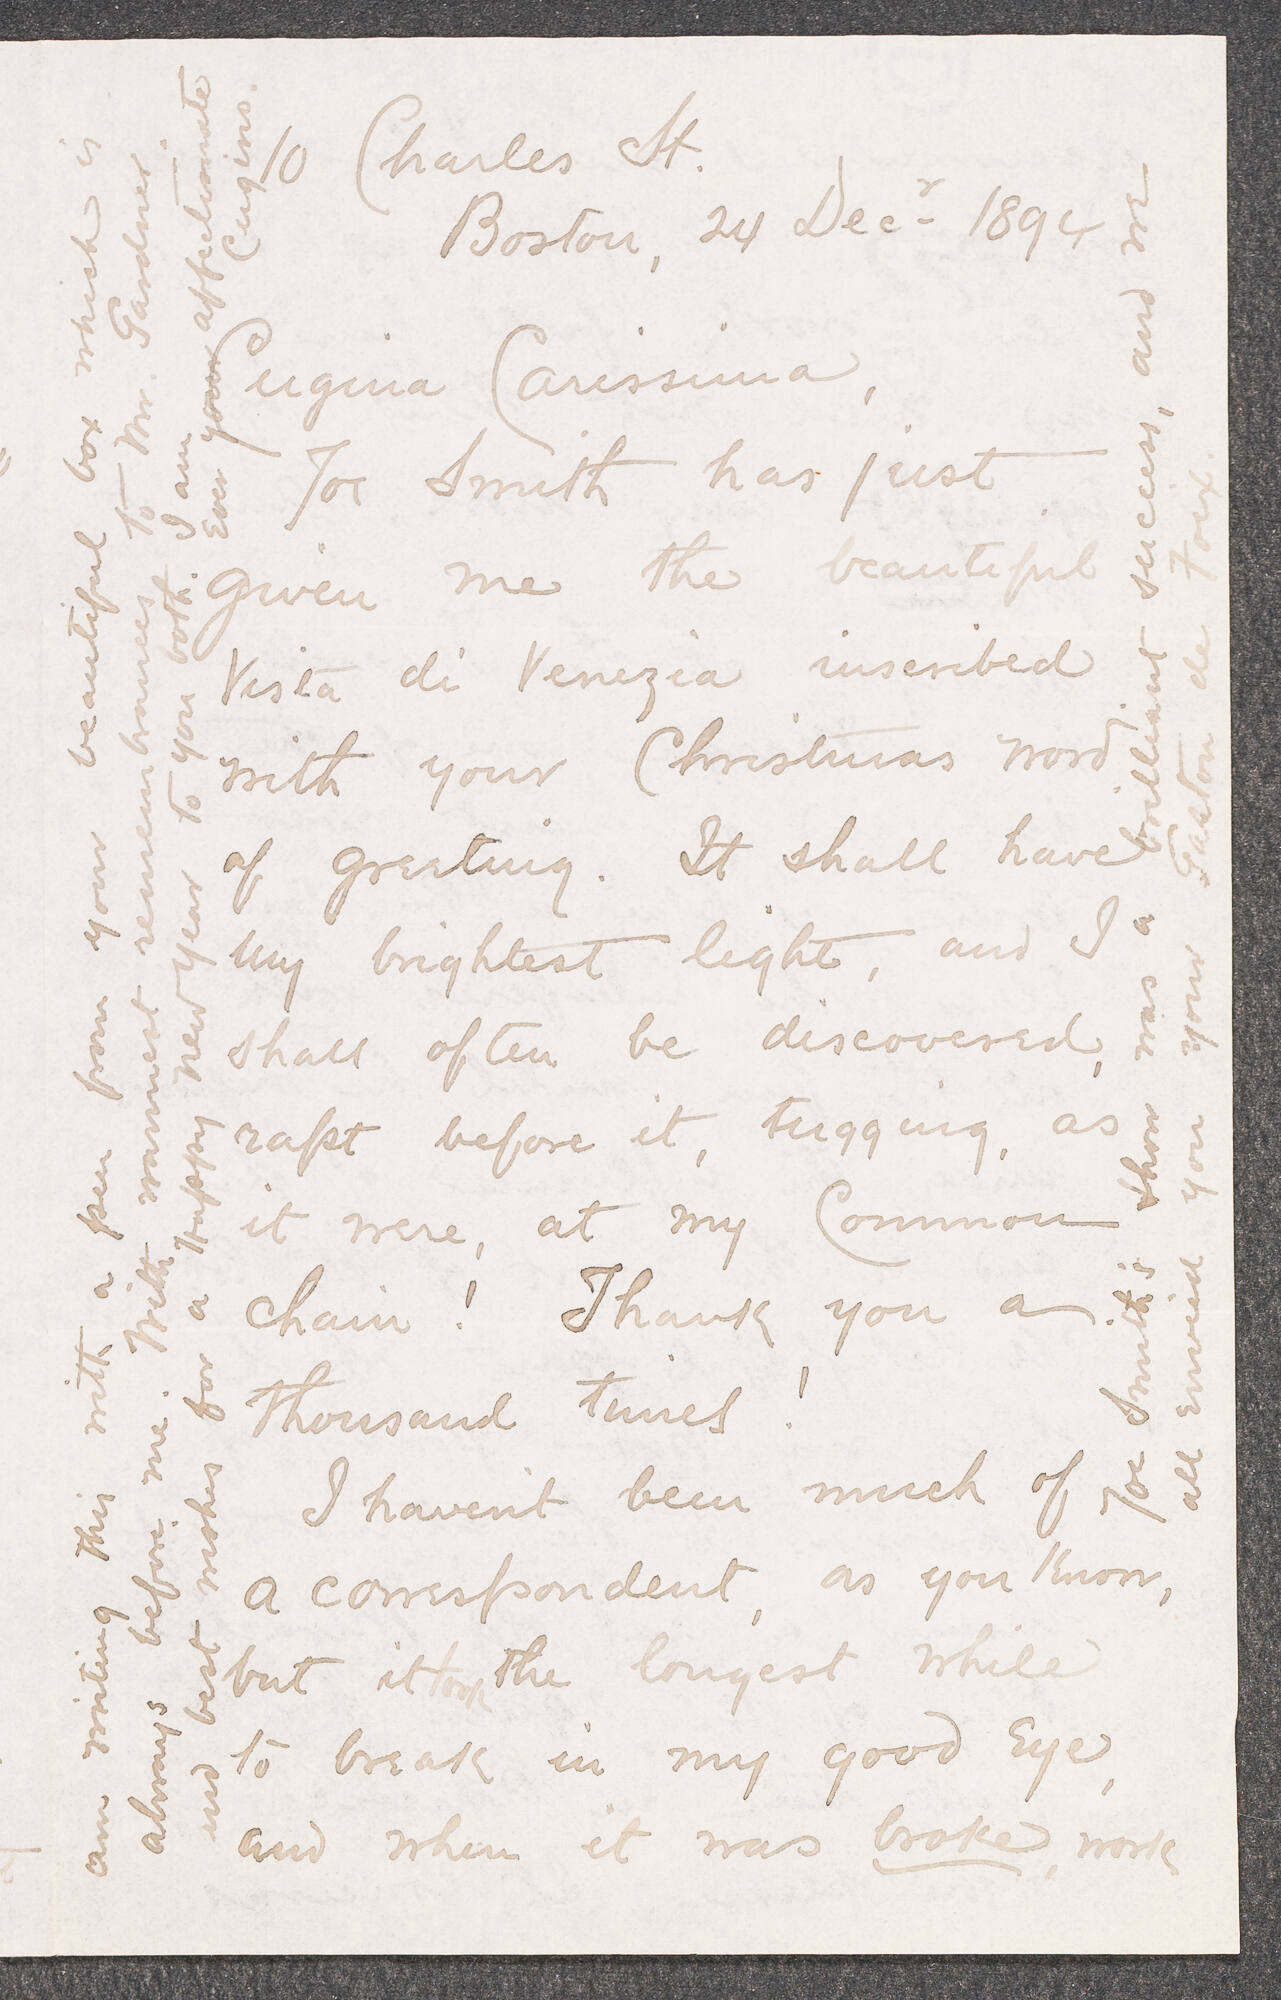 10 Charles St.
Boston, 24 Decr 1894
Cugina Carissima,
Joe Smith has just
given me the beautiful
Vista di Venezia inscribed
with your Christmas word
of greeting. It shall have
my brightest light, and I
shall often be discovered,
rapt before it, tugging, as
it were, at my Common
chain! Thank you a
thousand times!
I haven't been much of
a correspondent, as you know,
but it took the longest while
to break in my good Eye,
and when it was broke, work
am writing this with a pen from your beautiful box which is
always before me. With warmest remembrances to Mr. Gardner
and best wishes for a Happy New Year to you both. I am
Ever your affectionate
Cugino.
Joe Smith's show was a brilliant success, and we
all envied you your Gaston de Foix.